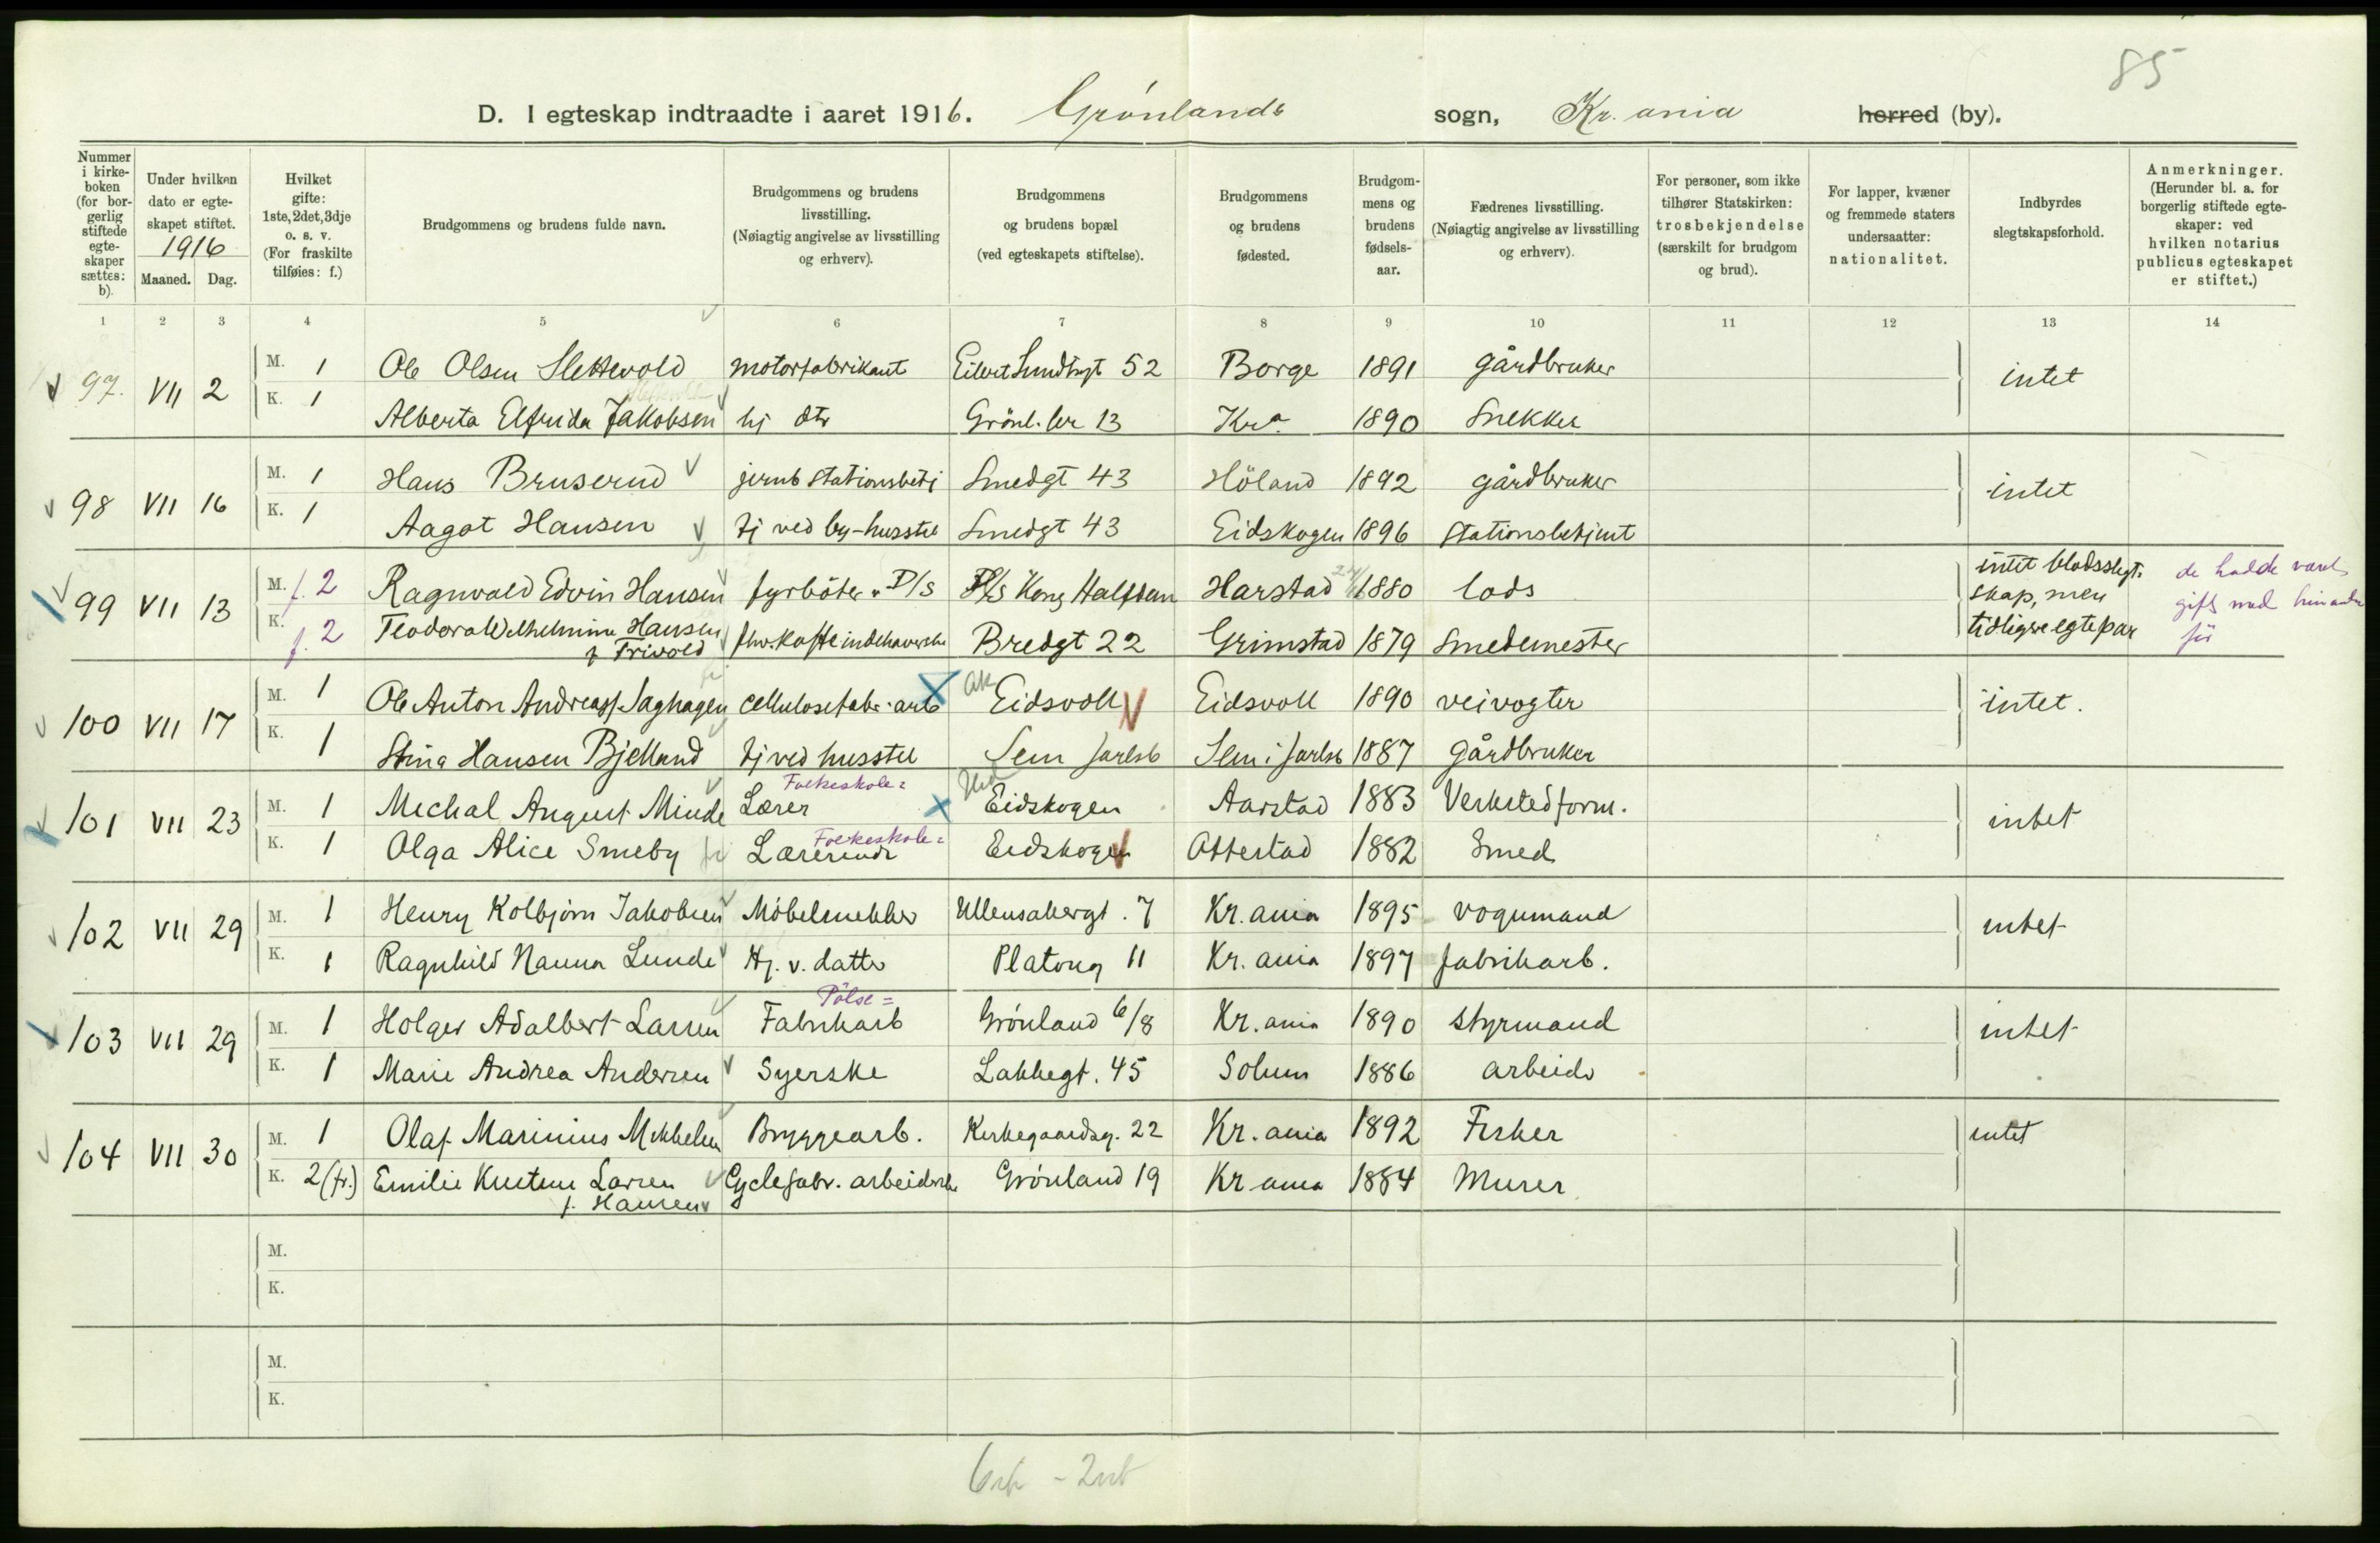 85
D. I egteskap indtraadte i aaret 1916. Grønlands sogn, Kr.ania herred (by).
Nummer i kirkeboken (for borgerlig stiftede egteskaper sættes: b).
Under hvilken dato er egteskapet stiftet. 1916 Maaned. Dag.
Hvilket gifte: 1ste, 2det, 3dje o. s. v. (For fraskilte tilføies: f.)
Brudgommens og brudens fulde navn.
Brudgommens og brudens livsstilling. (Nøiagtig angivelse av livsstilling og erhverv).
Brudgommens og brudens bopæl (ved egteskapets stiftelse).
Brudgommens og brudens fødested.
Brudgommens og brudens fødselsaar.
Fædrenes livsstilling. (Nøiagtig angivelse av livsstilling og erhverv).
For personer, som ikke tilhører Statskirken: trosbekjendelse (særskilt for brudgom og brud).
For lapper, kvæner og fremmede staters undersaatter: nationalitet.
Indbyrdes slegtskapsforhold.
Anmerkninger. (Herunder bl. a. for borgerlig stiftede egteskaper: ved hvilken notarius publicus egteskapet er stiftet.)
1 2 3 4 5 6 7 8 9 10 11 12 13 14
97. VII 2 M. 1 Ole Olsen Slettevold motorfabrikant Eilert Sundtsgt 52 Borge 1891 gårdbruker intet
K. 1 Alberta Elfrida Jakobsen hj dtr Grönl. ler 13 Kra 1890 Snekker
98 VII 16 M. 1 Hans Bruserud jernb stationsbetj Smedgt 43 Höland 1892 gårdbruker intet
K. 1 Aagot Hansen tj ved by-husstel Smedgt 43 Eidskogen 1896 Stationsbetjent
99 VII 13 M. f. 2 Ragnvald Edvin Hansen fyrböter D/S D/S Kong Halfdan Harstad 1880 lods intet blodsslegtskap, men tidligere egtepar de hadde vært gift med hinanden för
K. f. 2 Teodora Wilhelmine Hansen f Trivold fhv. kaffeindehaverske Bredgt 22 Grimstad 1879 Smedemester
100 VII 17 M. 1 Ole Anton Andreas Saghagen cellulosefabr. arb Ak Eidsvoll Eidsvoll 1890 veivogter intet.
K. 1 Stina Hansen Bjelland tj ved husstel Sem Jarlsb Sem i Jarlsb 1887 gårdbruker
101 VII 23 M. 1 Mechal August Minde Folkeskole= Lærer Hed Eidskogen Aarstad 1883 Verkstedform. intet
K. 1 Olga Alice Smeby Folkeskole= Lærerinde Eidskogen Ottestad 1882 Smed
102 VII 29 M. 1 Henry Kolbjørn Jakobsen Möbelsnekker Ullensakergt. 7 Kr.ania 1895 vognmand intet
K. 1 Ragnhild Nanna Lunde Hj. v. datter Platoug 11 Kr.ania 1897 fabrikarb.
103 VII 29 M. 1 Holger Adalbert Larsen Pölse= Fabrikarb Grönland 6/8 Kr.ania 1890 styrmand intet
K. 1 Marie Andrea Andersen Syerske Lakkegt. 45 Solum 1886 arbeider
104 VII 30 M. 1 Olaf Marinius Mikkelsen Bryggearb. Kirkegaardsg. 22 Kr.ania 1892 Fisker intet
K. 2 (fr.) Emilie Kristine Larsen f. Hansen Cyclefabr. arbeiderske Grönland 19 Kr.ania 1884 Murer
M.
K.
M.
K.